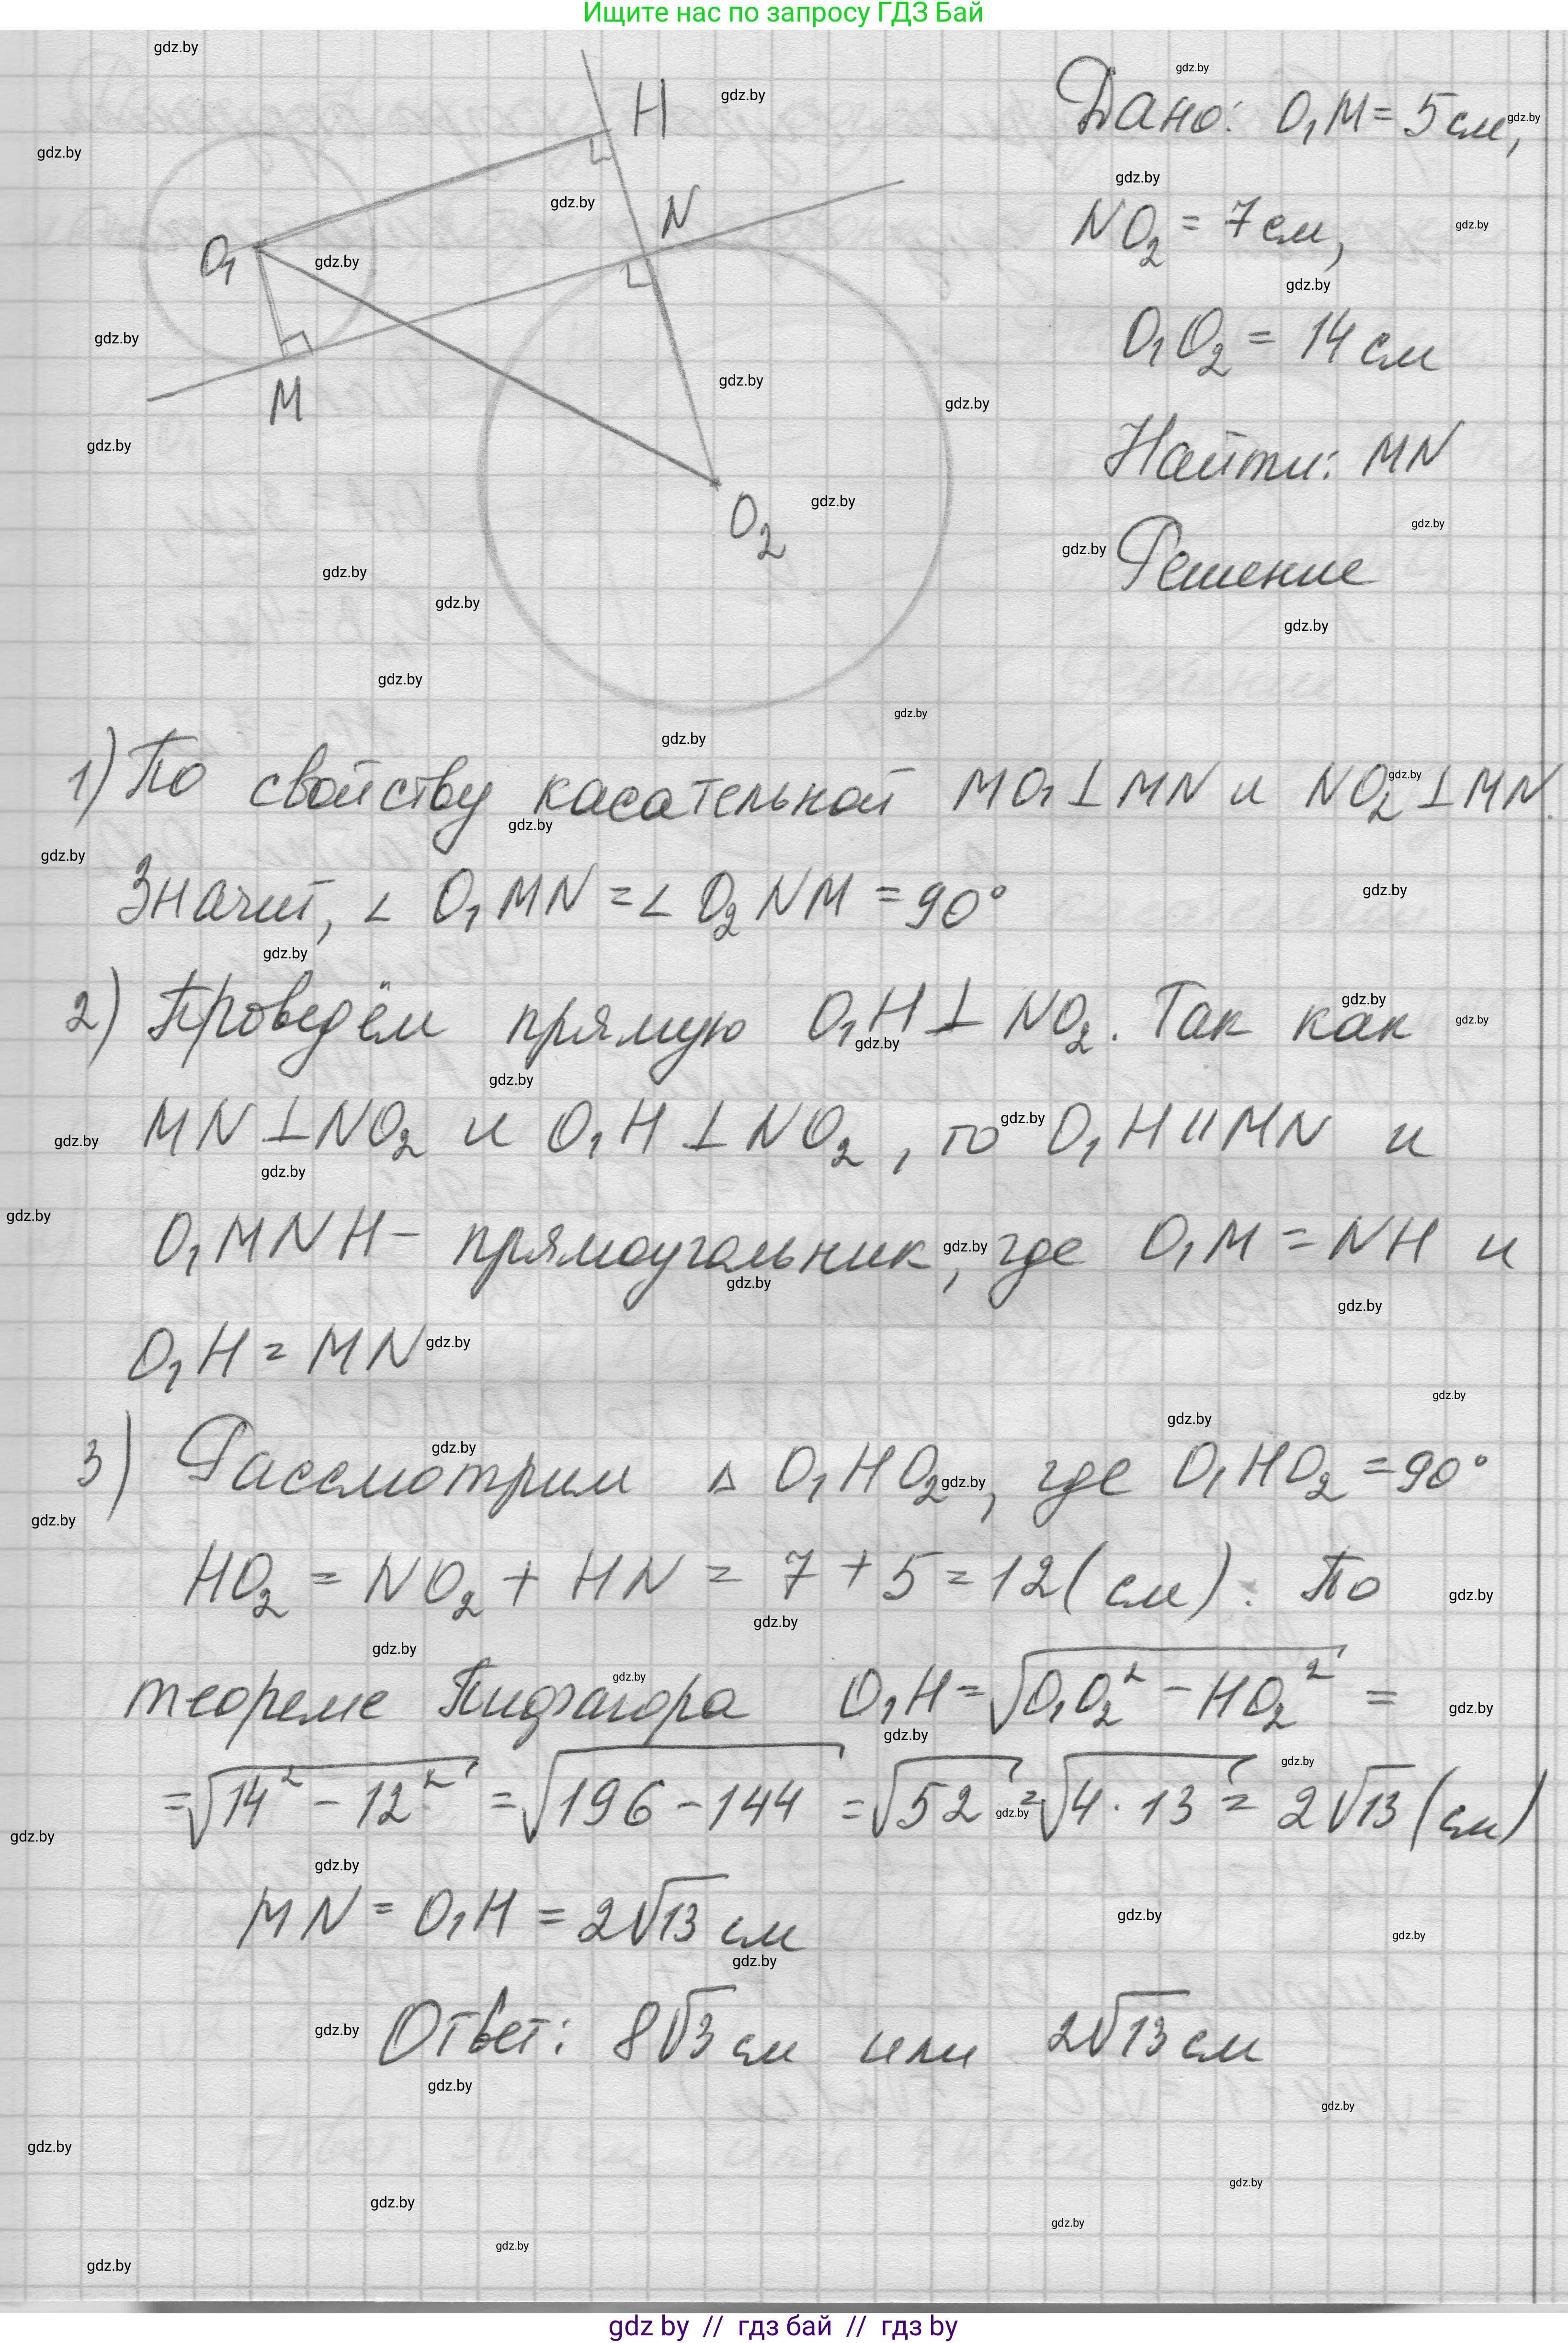 Ищите нас по запросу ГДЗ Бай
Дано: O₁M = 5 см,
NO₂ = 7 см,
O₁O₂ = 14 см
Найти: MN
Решение
H
N
O₁
M
O₂
1) По свойству касательной MO₁ ⊥ MN и NO₂ ⊥ MN.
Значит, ∠ O₁MN = ∠ O₂NM = 90°
2) Проведём прямую O₁H ⊥ NO₂. Так как
MN ⊥ NO₂ и O₁H ⊥ NO₂, то O₁H || MN и
O₁MNH – прямоугольник, где O₁M = NH и
O₁H = MN
3) Рассмотрим Δ O₁HO₂, где O₁HO₂ = 90°
HO₂ = NO₂ + HN = 7 + 5 = 12 (см). По
теореме Пифагора O₁H = √(O₁O₂² – HO₂²) =
= √(14² – 12²) = √(196 – 144) = √52 = √(4 · 13) = 2√13 (см)
MN = O₁H = 2√13 см
Ответ: 8√3 см или 2√13 см
gdz by // гдз бай // гдз by